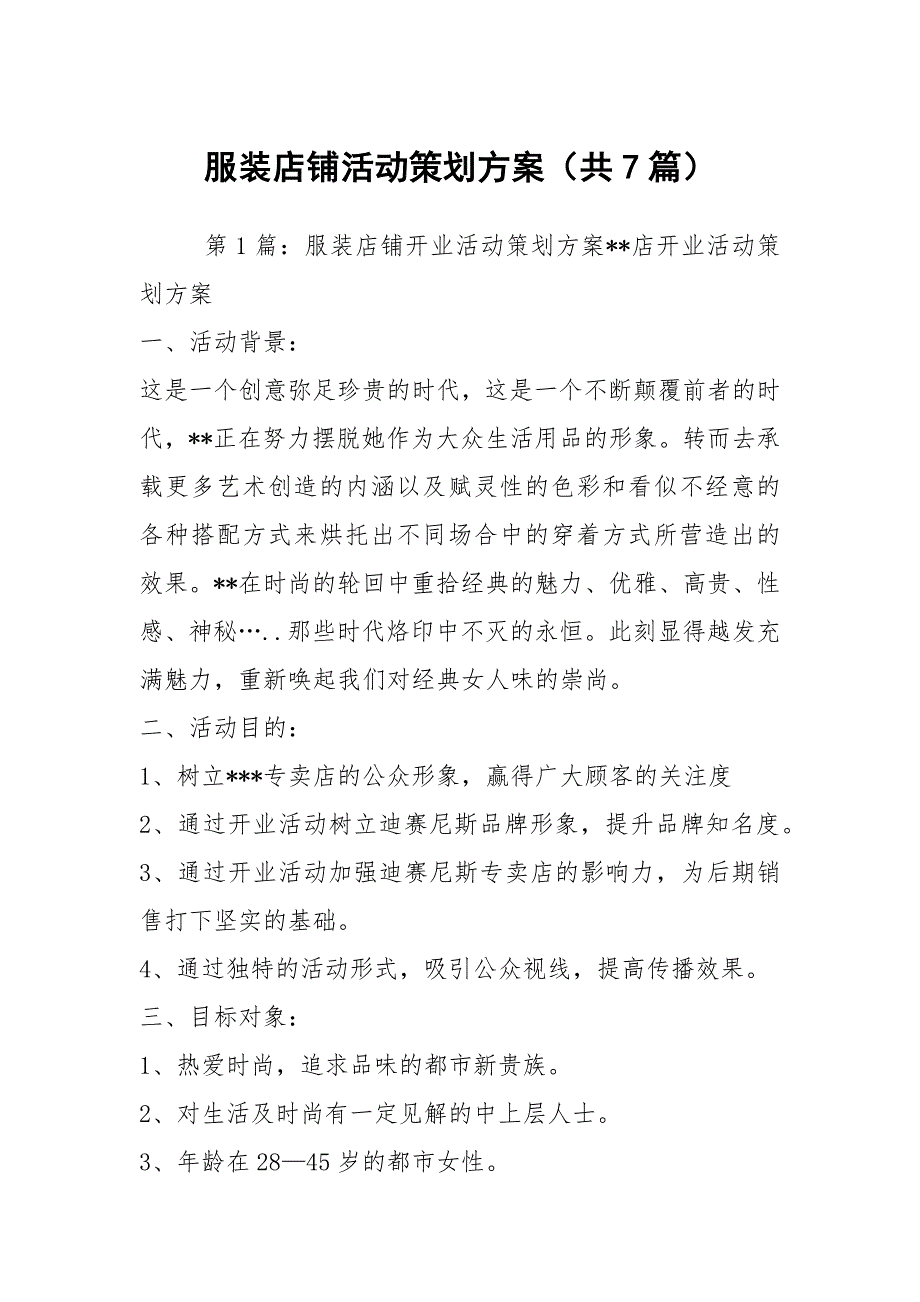 服装店铺活动策划方案（共 7 篇）
第 1 篇：服装店铺开业活动策划方案**店开业活动策
划方案
一、活动背景：
这是一个创意弥足珍贵的时代，这是一个不断颠覆前者的时
代，**正在努力摆脱她作为大众生活用品的形象。转而去承
载更多艺术创造的内涵以及赋灵性的色彩和看似不经意的
各种搭配方式来烘托出不同场合中的穿着方式所营造出的
效果。**在时尚的轮回中重拾经典的魅力、优雅、高贵、性
感、神秘…..那些时代烙印中不灭的永恒。此刻显得越发充
满魅力，重新唤起我们对经典女人味的崇尚。
二、活动目的：
1、树立***专卖店的公众形象，赢得广大顾客的关注度
2、通过开业活动树立迪赛尼斯品牌形象，提升品牌知名度。
3、通过开业活动加强迪赛尼斯专卖店的影响力，为后期销
售打下坚实的基础。
4、通过独特的活动形式，吸引公众视线，提高传播效果。
三、目标对象：
1、热爱时尚，追求品味的都市新贵族。
2、对生活及时尚有一定见解的中上层人士。
3、年龄在 28—45 岁的都市女性。